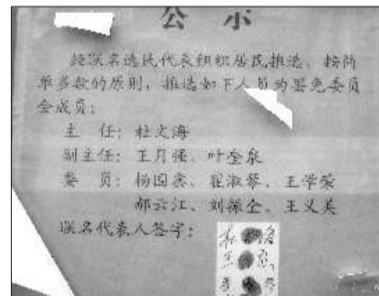 公示
经联名选民代表组织居民推选，按简
单多数的原则，推选如下人员为罢免委员
会成员：
主 任：杜文海
副主任：王月强、叶奎泉
委 员：杨国忠、翟淑琴、王学荣
郝云江、刘振全、王义美
联名代表人签字：